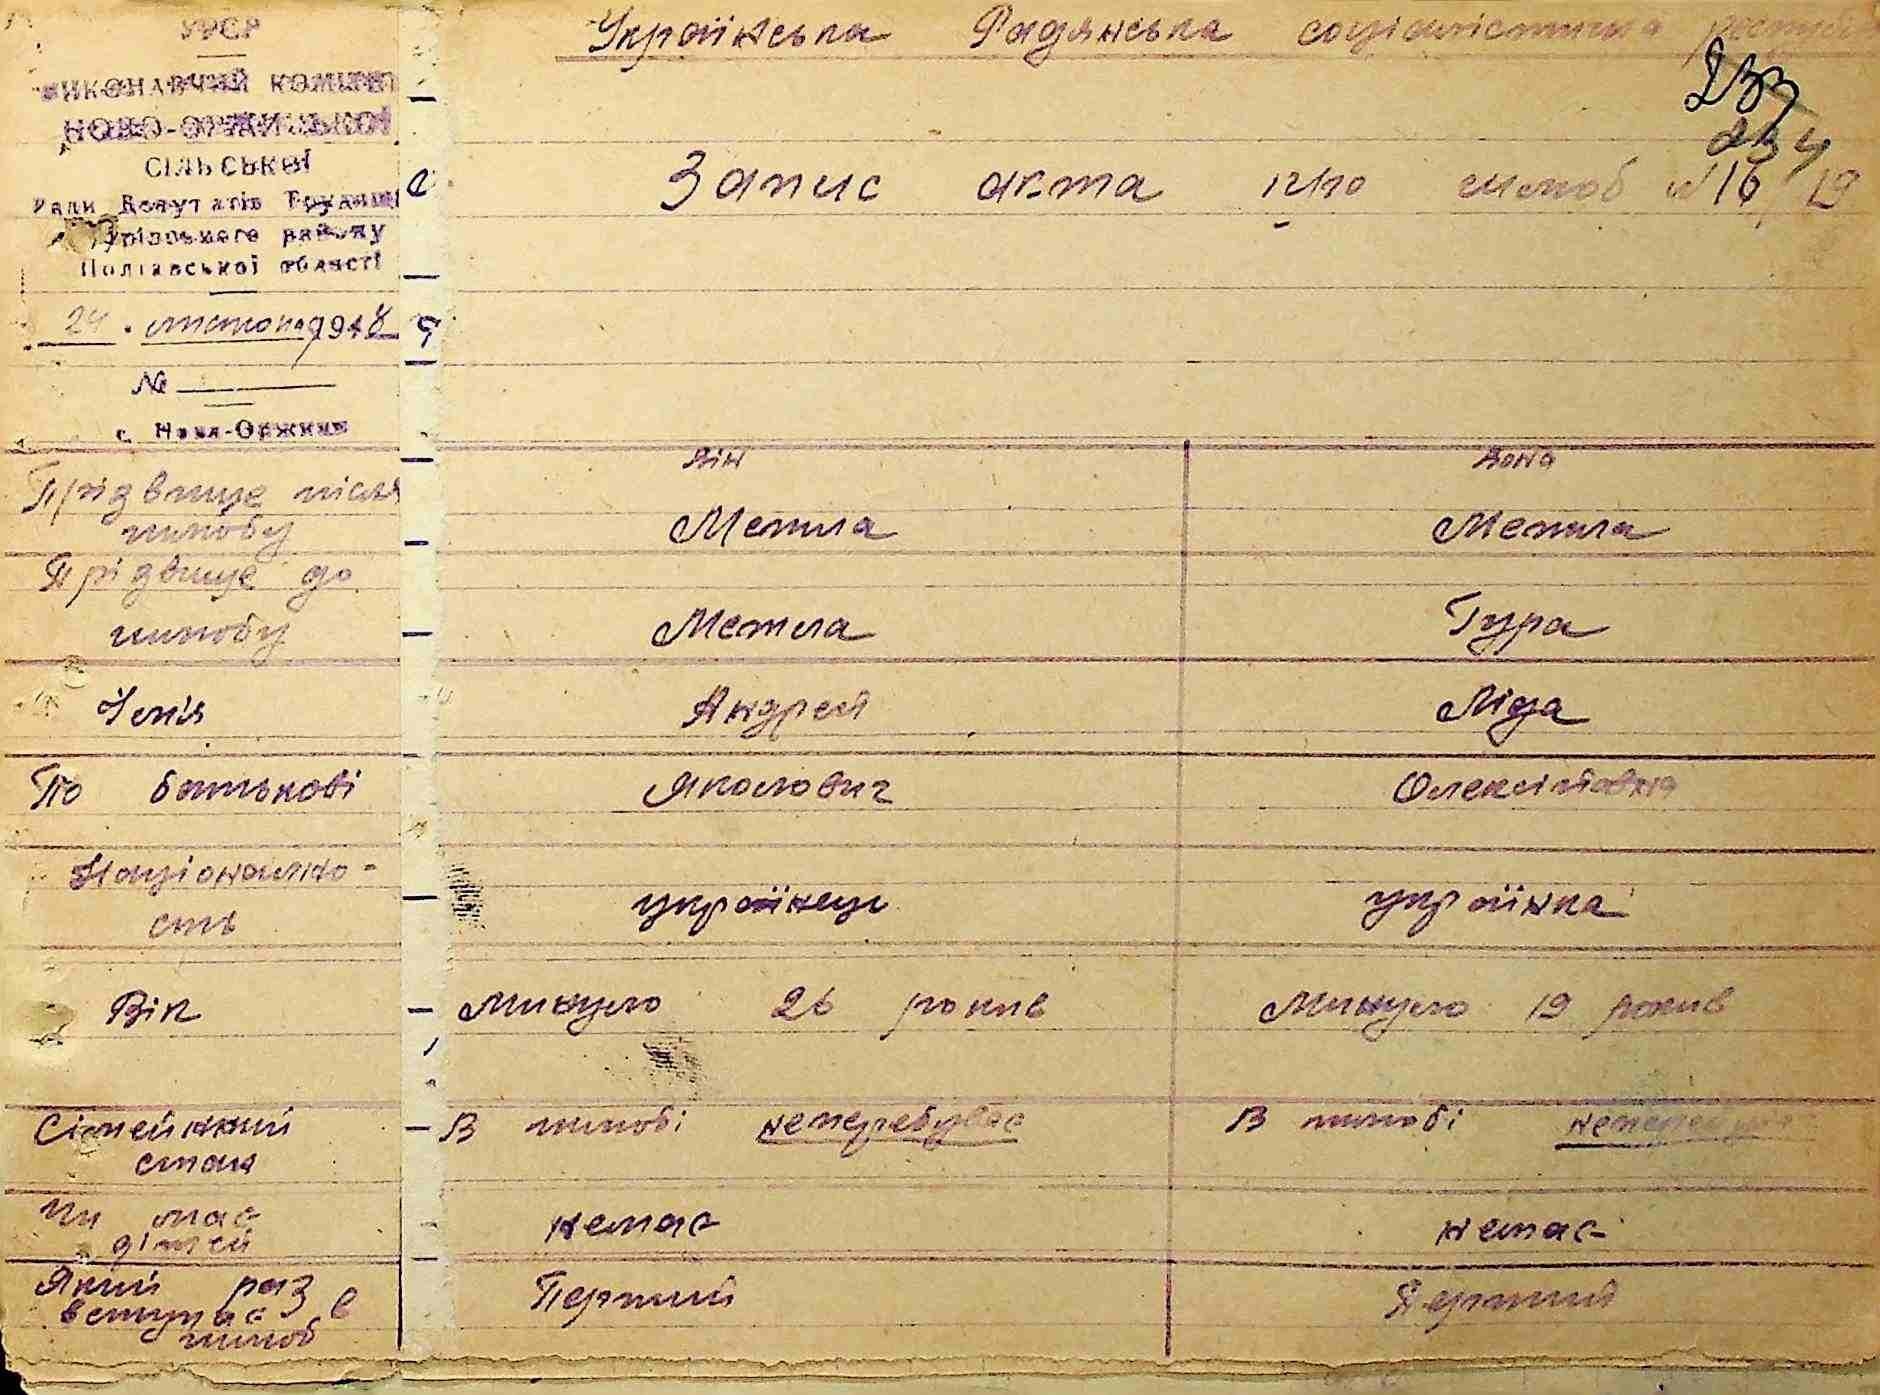 УРСР
Українська Радянська соціалістична
ВИКОНАВЧИЙ КОМІТЕТ
НОВО-ОРЖИЦЬКОЇ
СІЛЬСЬКОЇ
Ради Депутатів Трудящ
району
Полтавської області
237
234
Запис акта про шлюб №16 19
24 . листопа 1948
№
с. Нова-Оржиця
Він Вона
Прізвище після
шлюбу Метла Метла
Прізвище до
шлюбу Метла Гура
Імя Андрей Ліда
По батькові Яковлович Олексіївна
Націонално-
сть українець українка
Вік Минуло 26 рокив Минуло 19 рокив
Сімейнний В шлюбі неперебуває В шлюбі
стан
Чи має
дітей немає немає
Який раз Перший Перший
вступає в
шлюб